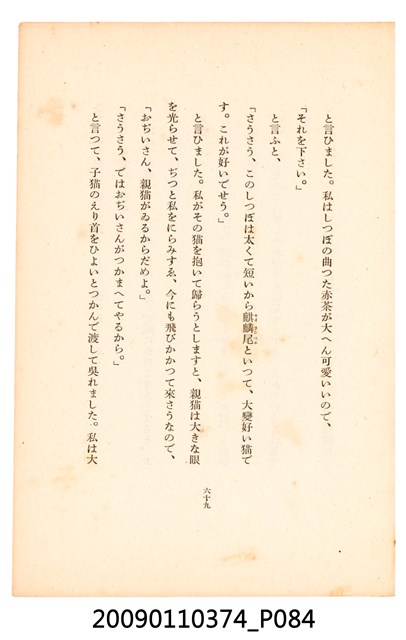 と言ひました。私はしつぽの曲つた赤茶が大へん可愛いいので、
「それを下さい。」
と言ふと、
「さうさう、このしつぽは太くて短いから麒麟尾といつて、大變好い猫で
す。これが好いでせう。」
と言ひました。私がその猫を抱いて歸らうとしますと、親猫は大きな眼
を光らせて、ぢつと私をにらみすゑ、今にも飛びかかつて來さうなので、
「おぢいさん、親猫がゐるからだめよ。」
「さうさう、ではおぢいさんがつかまへてやるから。」
と言つて、子猫のえり首をひよいとつかんで渡して吳れました。私は大
六十九
20090110374_P084